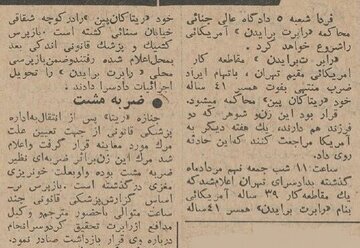 فردا شعبه ۵ دادگاه عالی جنائی
محاکمه «رابرت برایدن» آمریکائی
را شروع خواهد کرد.
«رابرت برایدن» مقاطعه کار
آمریکائی مقیم تهران، باتهام ایراد
ضرب منتهی بفوت همسر ۴۱ ساله
خود «ریتاکان پین» محاکمه میشود.
قرار بود این زن و شوهر که دو
فرزند هم دارند، یک هفته دیگر به
آمریکا مراجعت کنند که این حادثه
روی داد.
ساعت ۱۱ شب جمعه نهم مردادماه
گذشته بدادسرای تهران اعلام شد که
یک مقاطعه کار ۳۹ ساله آمریکائی
بنام «رابرت برایدن» همسر ۴۱ ساله
خود «ریتاکان پین» را در کوچه شقاقی
خیابان سنائی کشته است. بازپرس
کشیک و پزشک قانونی اندکی بعد
بمحل اعلام شده رفتند و ضمن بازپرسی
محلی «رابرت برایدن» را تحویل
اجرائیات دادسرا دادند.
● ضربه مشت
جنازه «ریتا» پس از انتقال به اداره
پزشکی قانونی از جهت تعیین علت
مرگ مورد معاینه قرار گرفت و اعلام
شد مرگ این زن براثر ضربه‌ای نظیر
ضربه مشت بوده و بعلت خونریزی
مغزی درگذشته است. بازپرس س
اساس گزارش پزشکی قانونی چند
ساعت متوالی باحضور مترجم و کیل
مدافع ازرابرت تحقیق کرد و سرانجام
درباره وی قرار بازداشت صادر نمود.